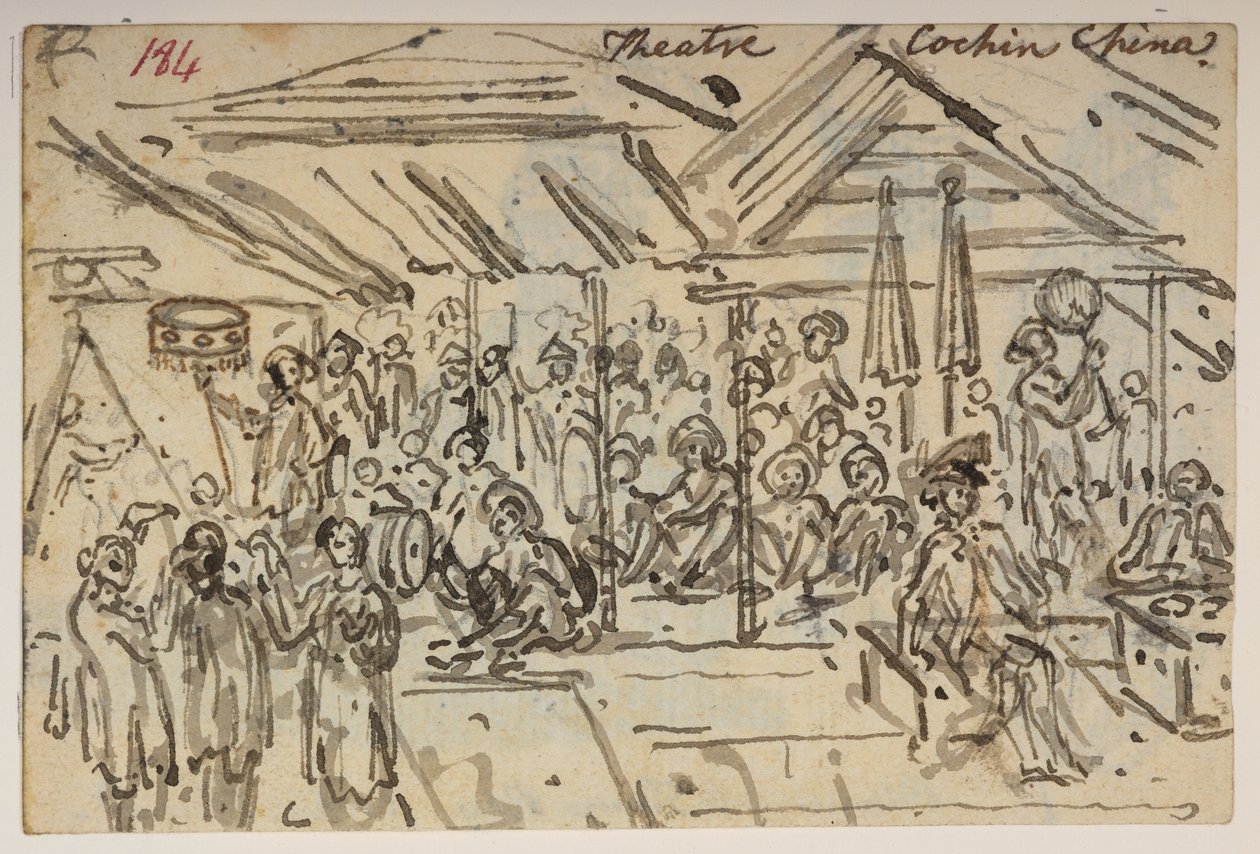 184
Theatre Cochin China